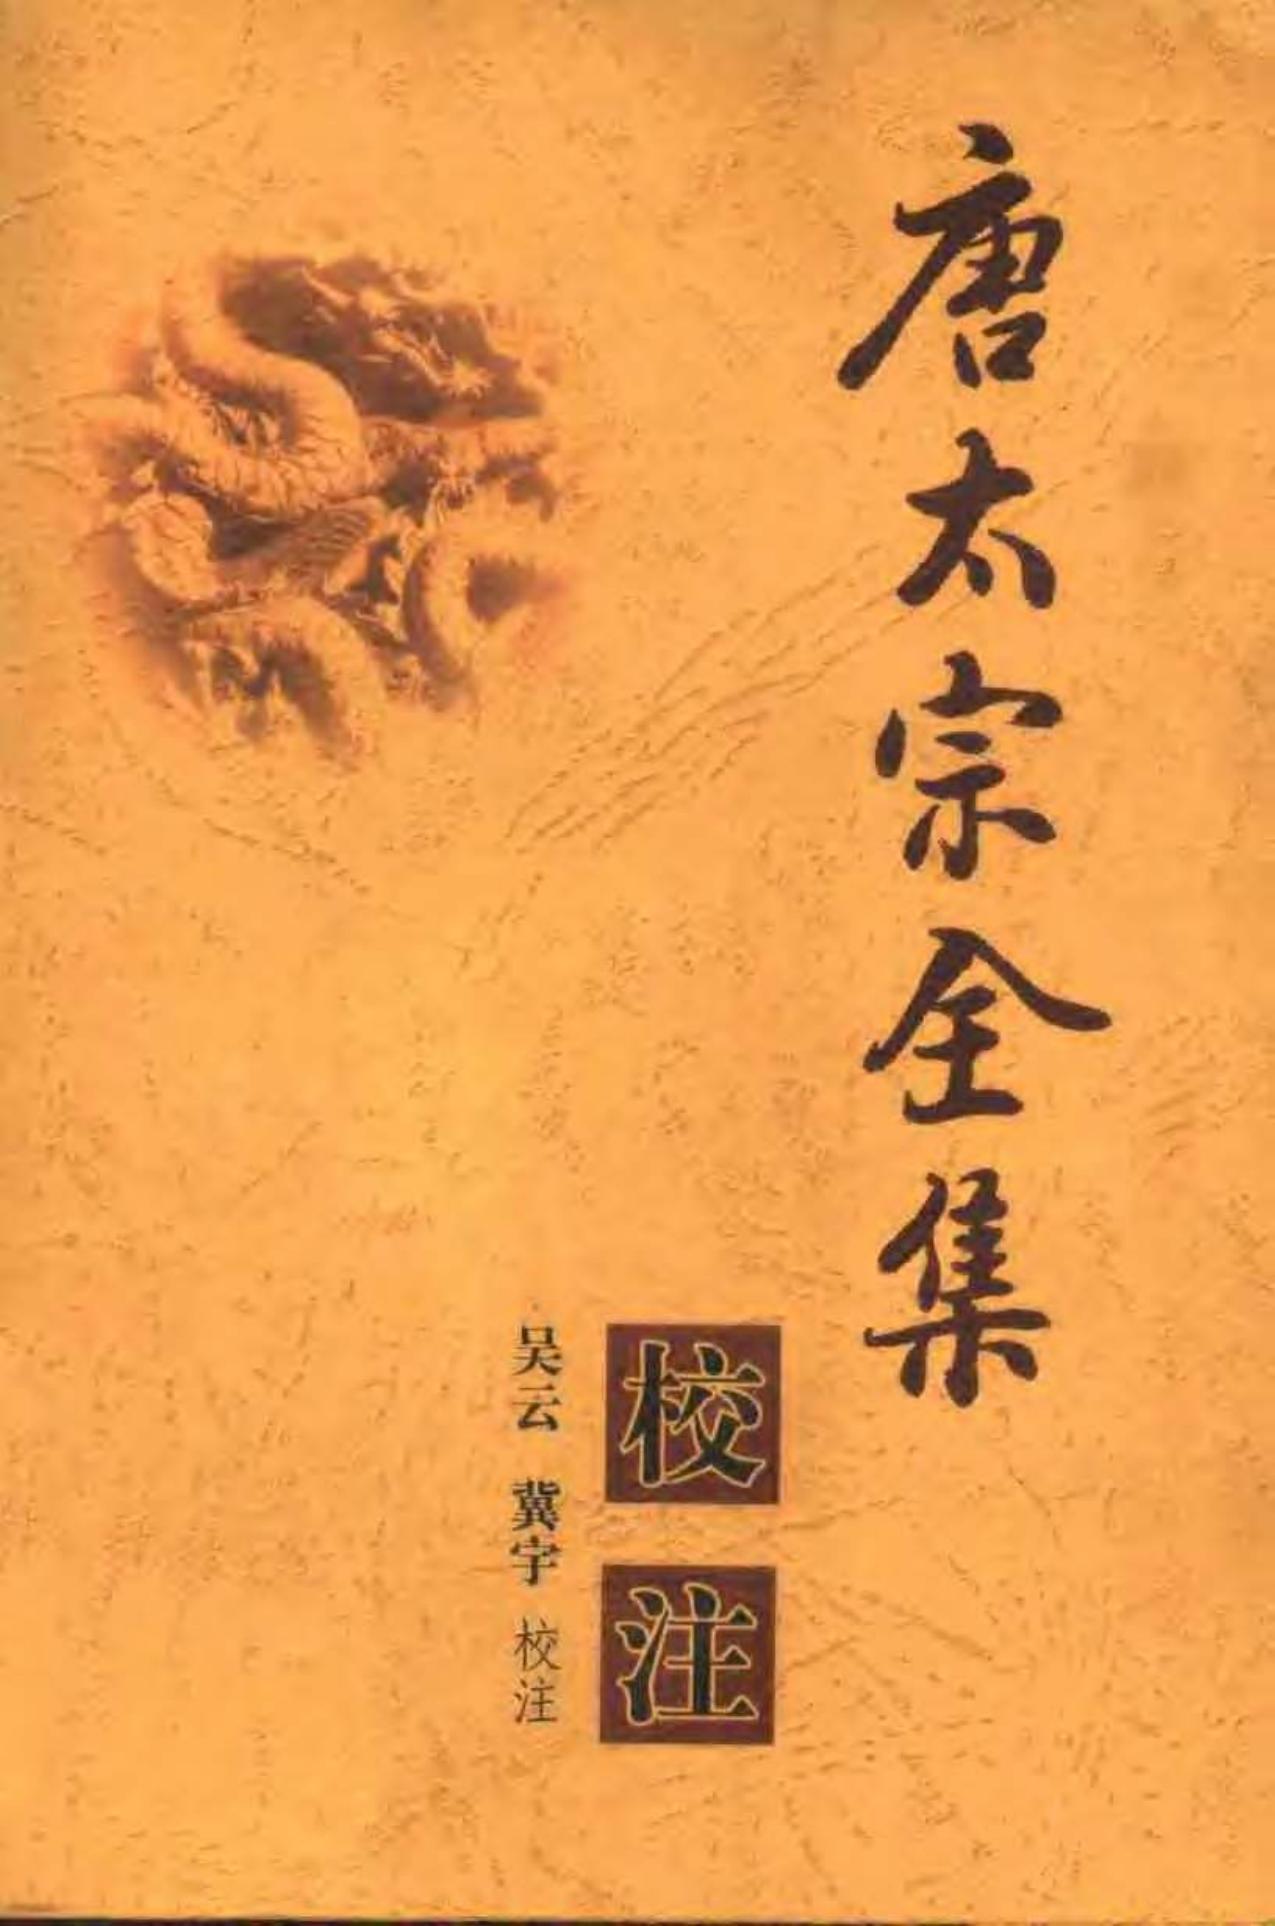 唐太宗全集
校注
吴云 冀宇 校注